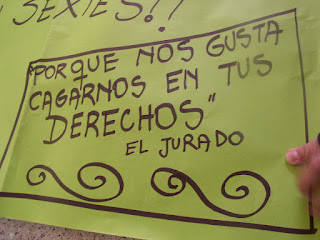 SEXIES!!
"PORQUE NOS GUSTA
CAGARNOS EN TUS
DERECHOS"
EL JURADO